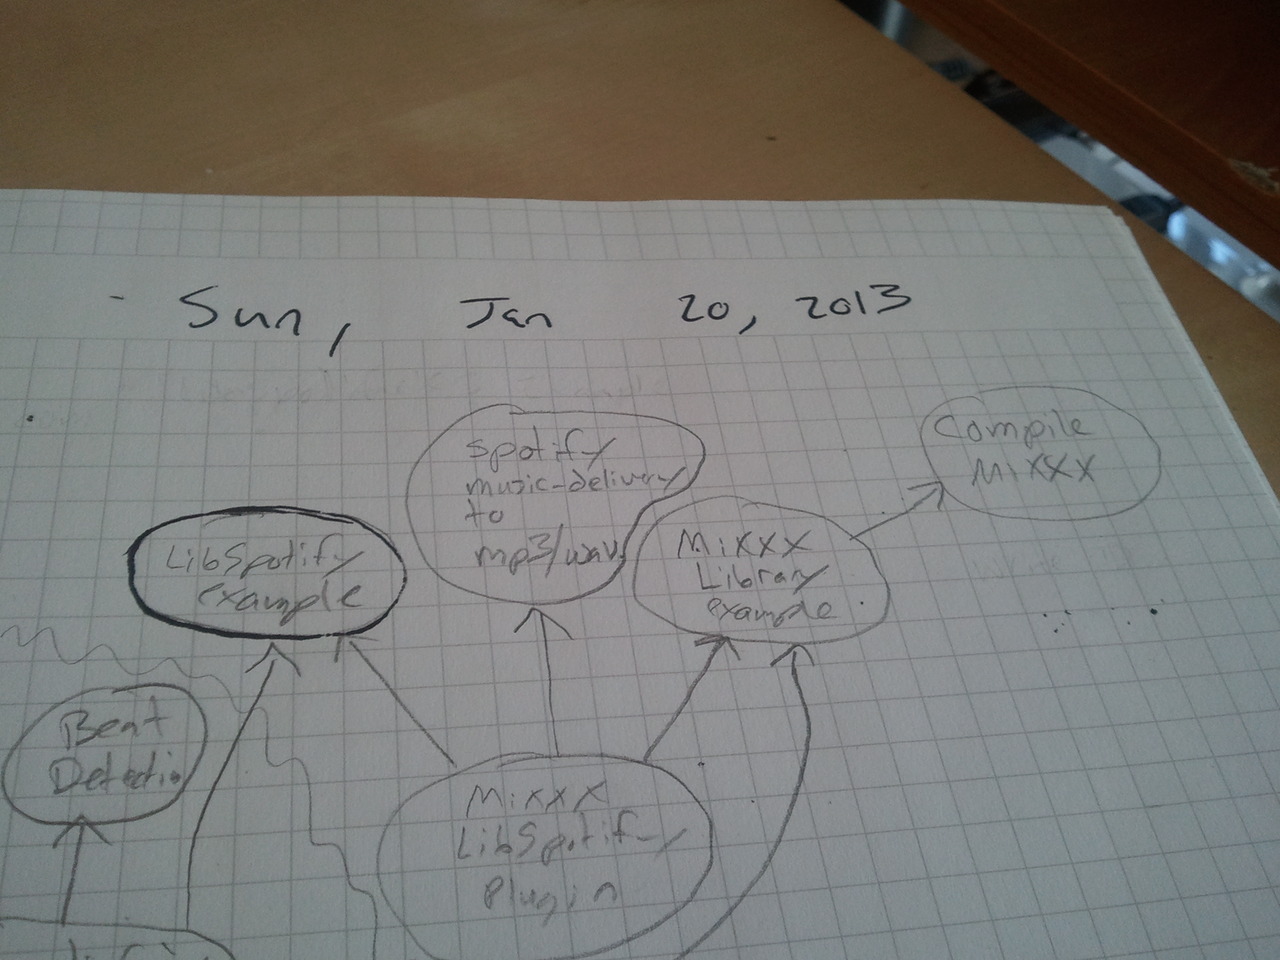 - Sun, Jan 20, 2013
Compile
Mixxx
spotify
music-delivery
to
mp3/wav
LibSpotify
example
Mixxx
Library
example
Beat
Detection
Mixxx
LibSpotify
Plugin